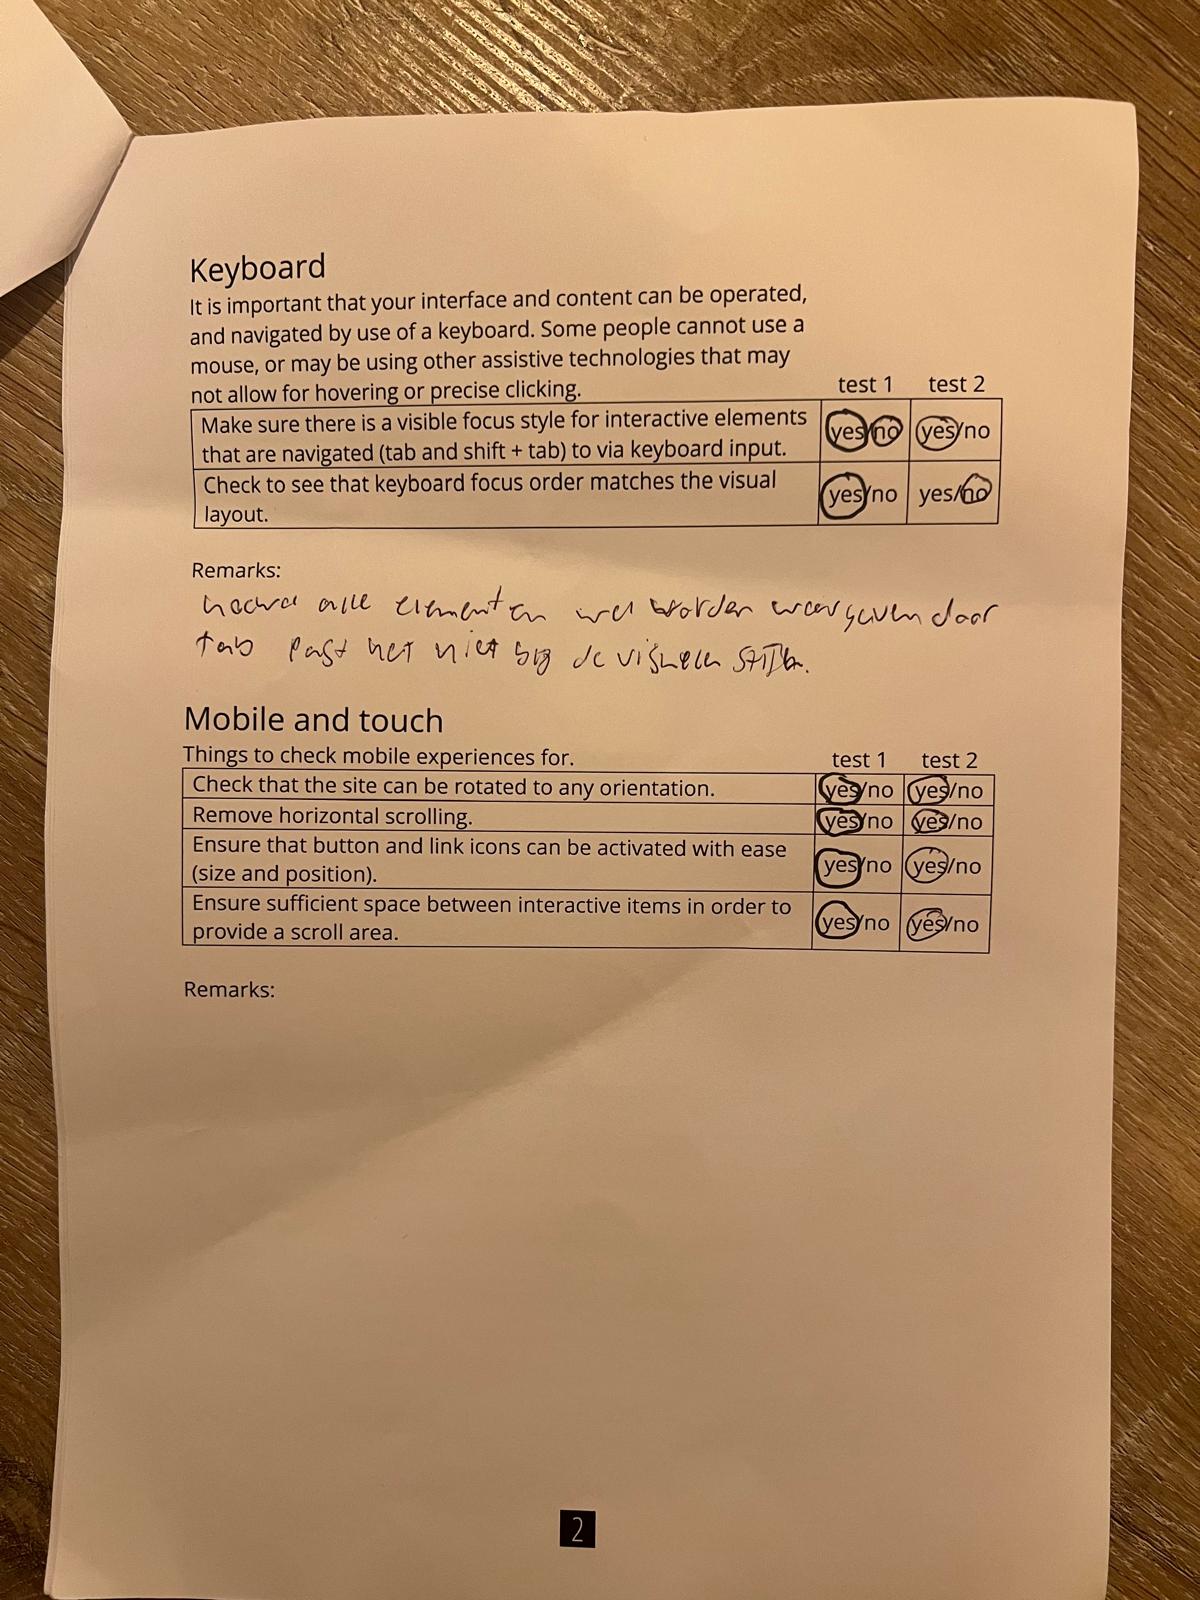 Keyboard
It is important that your interface and content can be operated,
and navigated by use of a keyboard. Some people cannot use a
mouse, or may be using other assistive technologies that may
not allow for hovering or precise clicking.
test 1 test 2
Make sure there is a visible focus style for interactive elements
that are navigated (tab and shift + tab) to via keyboard input.
yes/no yes/no
Check to see that keyboard focus order matches the visual
layout.
yes/no yes/no
Remarks:
alle elementen wel worden weergeven door
tab past het niet bij de visuele
Mobile and touch
Things to check mobile experiences for.
test 1 test 2
Check that the site can be rotated to any orientation. yes/no yes/no
Remove horizontal scrolling. yes/no yes/no
Ensure that button and link icons can be activated with ease
(size and position).
yes/no yes/no
Ensure sufficient space between interactive items in order to
provide a scroll area.
yes/no yes/no
Remarks:
2